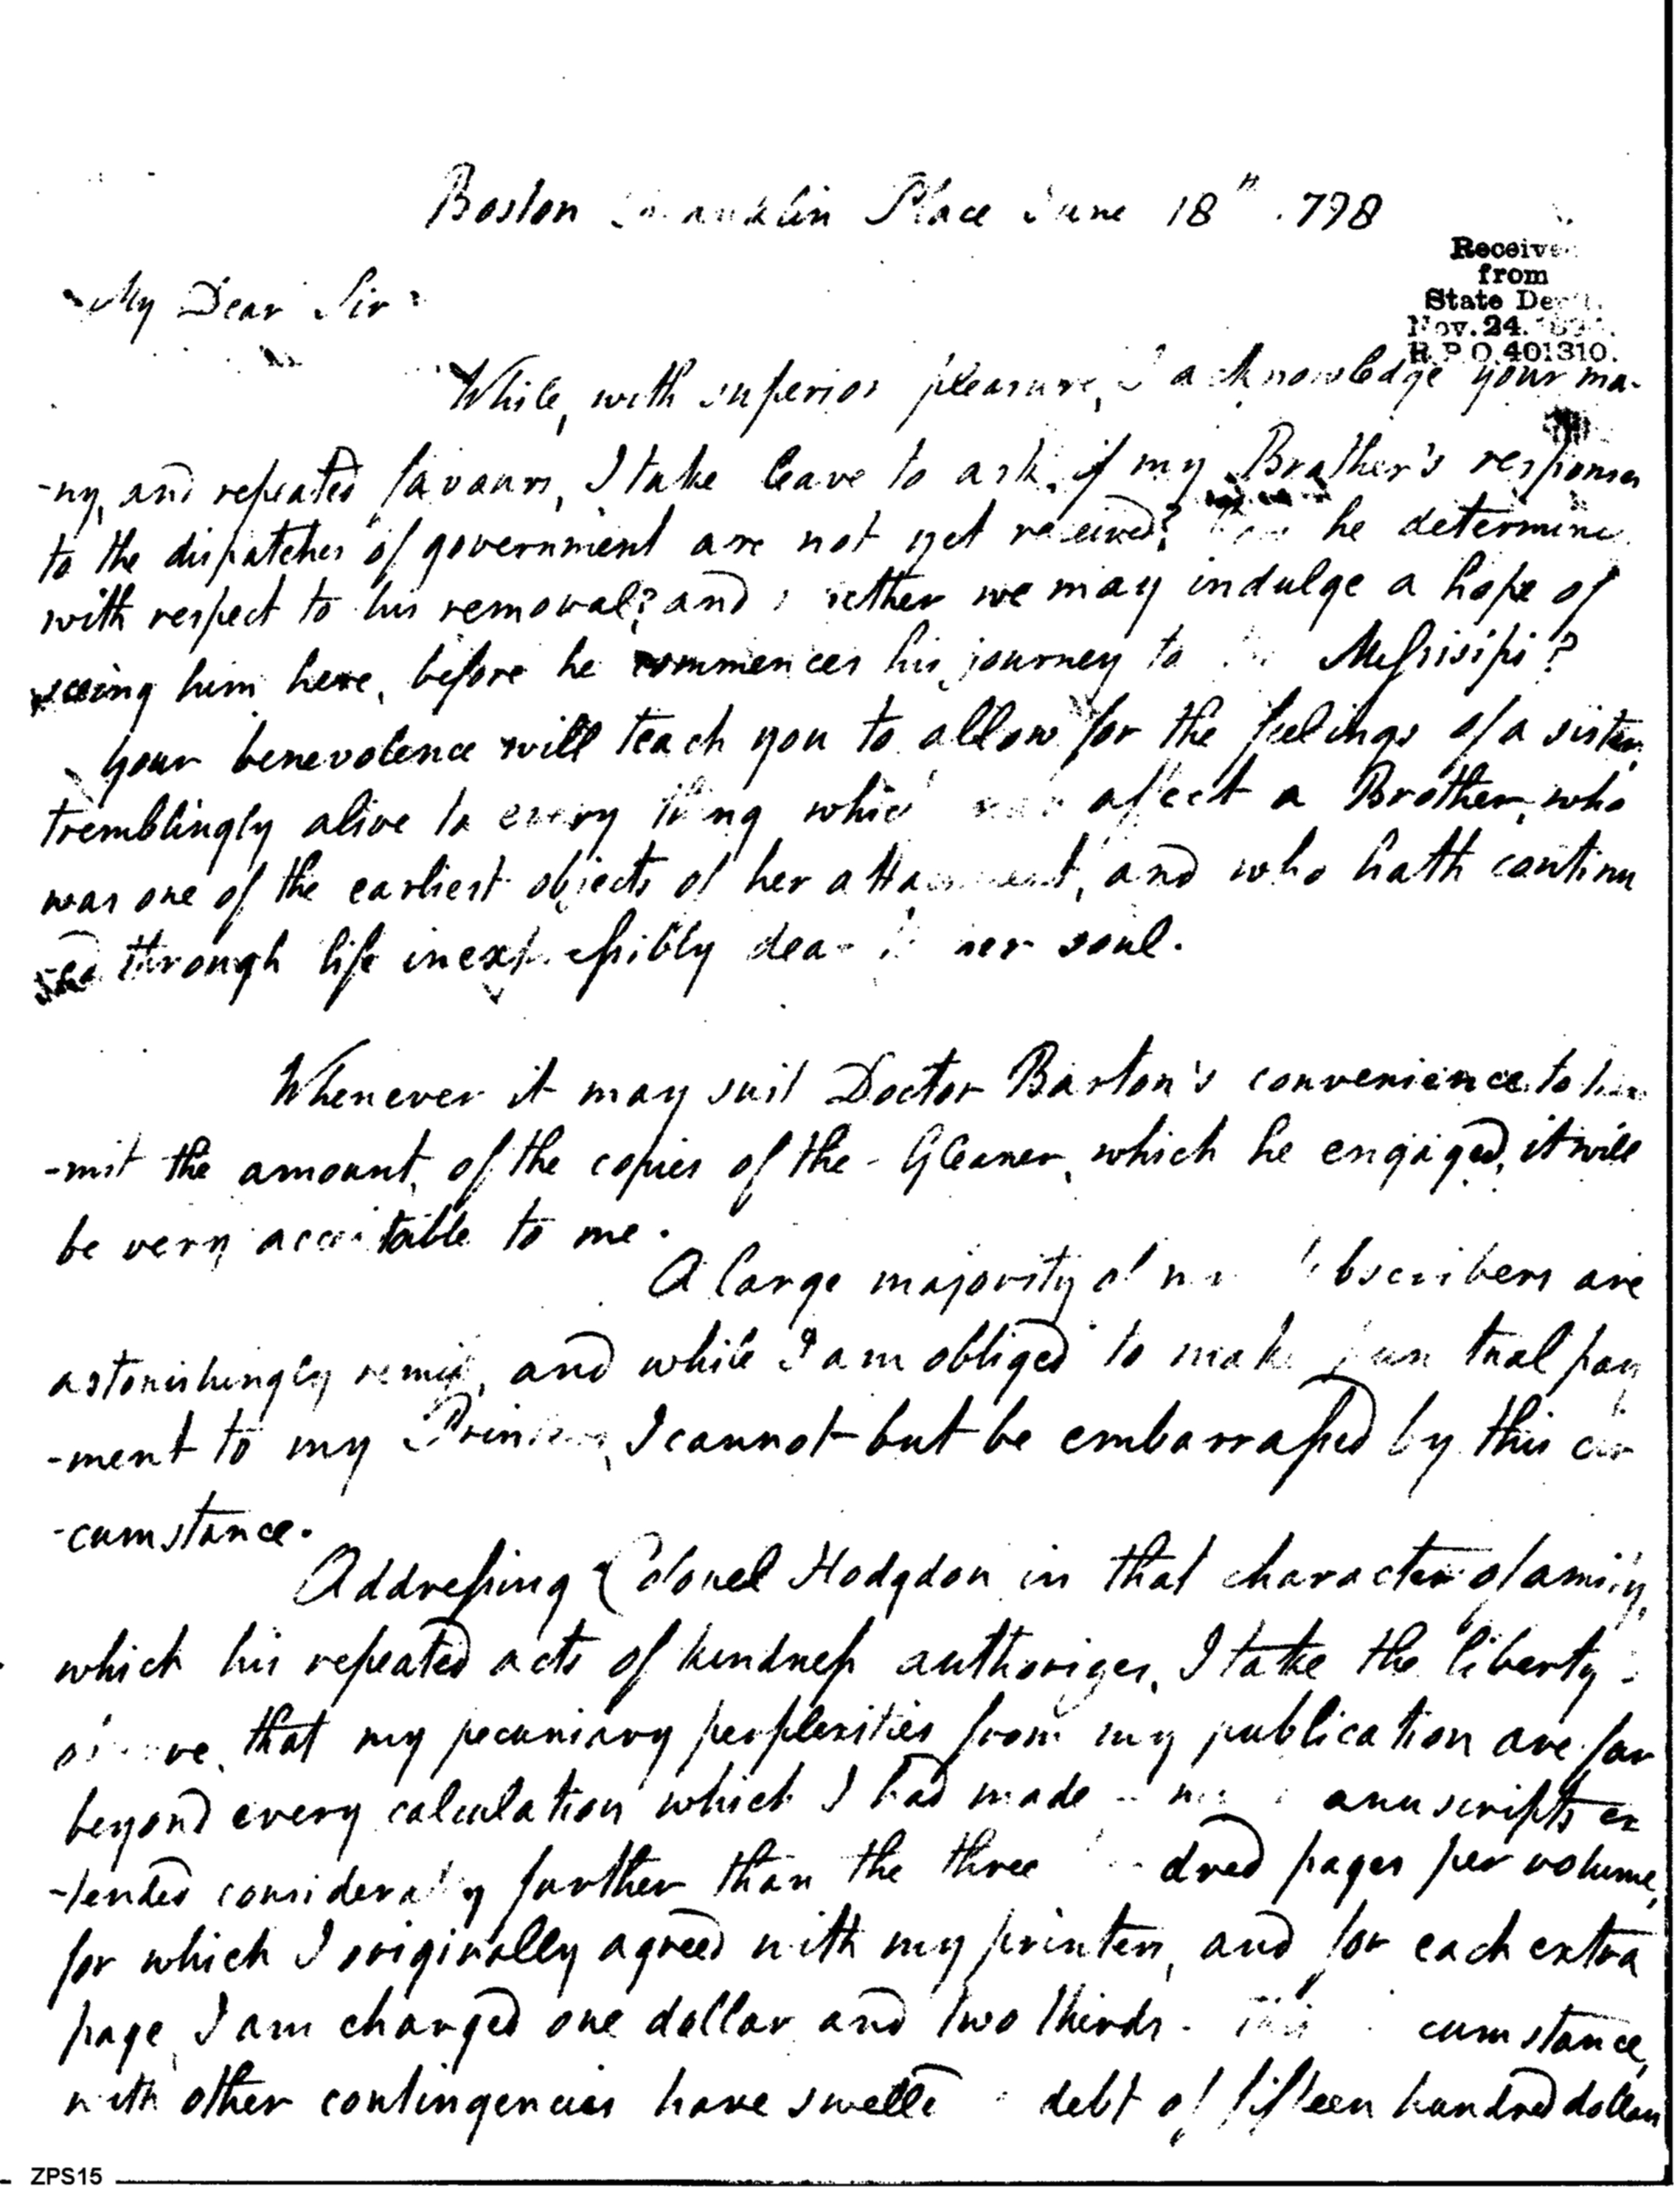 Boston Franklin Place June 18th 1798
Received
from
State Dept.
Nov. 24.
R.P.O. 401310.
My Dear Sir
While, with superior pleasure, I acknowledge your ma-
-ny, and repeated favours, I take leave to ask, if my Brother's responses
to the dispatches of government are not yet received? he determine
with respect to his removal? and whether we may indulge a hope of
seeing him here, before he commences his journey to the Messisipi?
your benevolence will teach you to allow for the feelings of a sister,
tremblingly alive to every thing which may affect a Brother, who
was one of the earliest objects of her attachment, and who hath continu
-ed through life inexpressibly dear to her soul.
Whenever it may suit Doctor Barton's convenience to
-mit the amount, of the copies of the Gleaner, which he engaged, it will
be very acceptable to me.
A large majority of my subscribers are
astonishingly remiss, and while I am obliged to make punctual pay
-ment to my Printers, I cannot but be embarrassed by this cir
-cumstance.
Addressing Colonel Hodgdon in that character of amity,
which his repeated acts of kindness authorizes, I take the liberty
observe, that my pecuniary perplexities from my publication are far
beyond every calculation which I had made my manuscripts ex
-tended considerably further than the three hundred pages per volume,
for which I originally agreed with my printers, and for each extra
page, I am charged one dollar and two thirds. This circumstance,
with other contingencies have swelled debt of fifteen hundred dollars
ZPS15